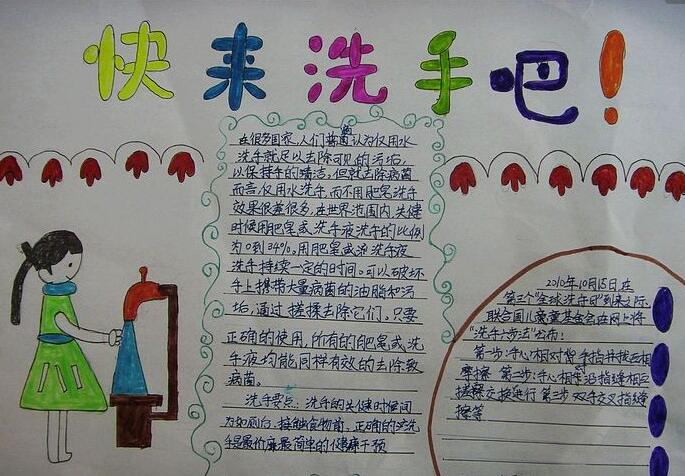 快来洗手吧！
在很多国家,人们普遍认为仅用水
洗手就足以去除可见的污垢,
以保持手的清洁,但就去除病菌
而言,仅用水洗手,而不用肥皂洗手
效果很差很多,在世界范围内,关键
时候用肥皂或洗手液洗手的比例
为0到34%。用肥皂或洗手液
洗手持续一定的时间。可以破坏
手上携带大量病菌的油脂和污
垢,通过搓揉去除它们。只要
正确的使用,所有的肥皂或洗
手液均能同样有效的去除致
病菌。
洗手要点：洗手的关健时候间
为如厕后、接触食物前,正确的洗
手是最价廉最简单的健康干预
2010年10月15日在
第三个"全球洗手日"到来之际,
联合国儿童基金会在网上将
"洗手六步法"公布!
第一步:手心相对 手指并拢互相
摩擦 第二步:手心相 手沿指缝相互
搓擦 交换进行 第三步 双手交叉指缝
擦等